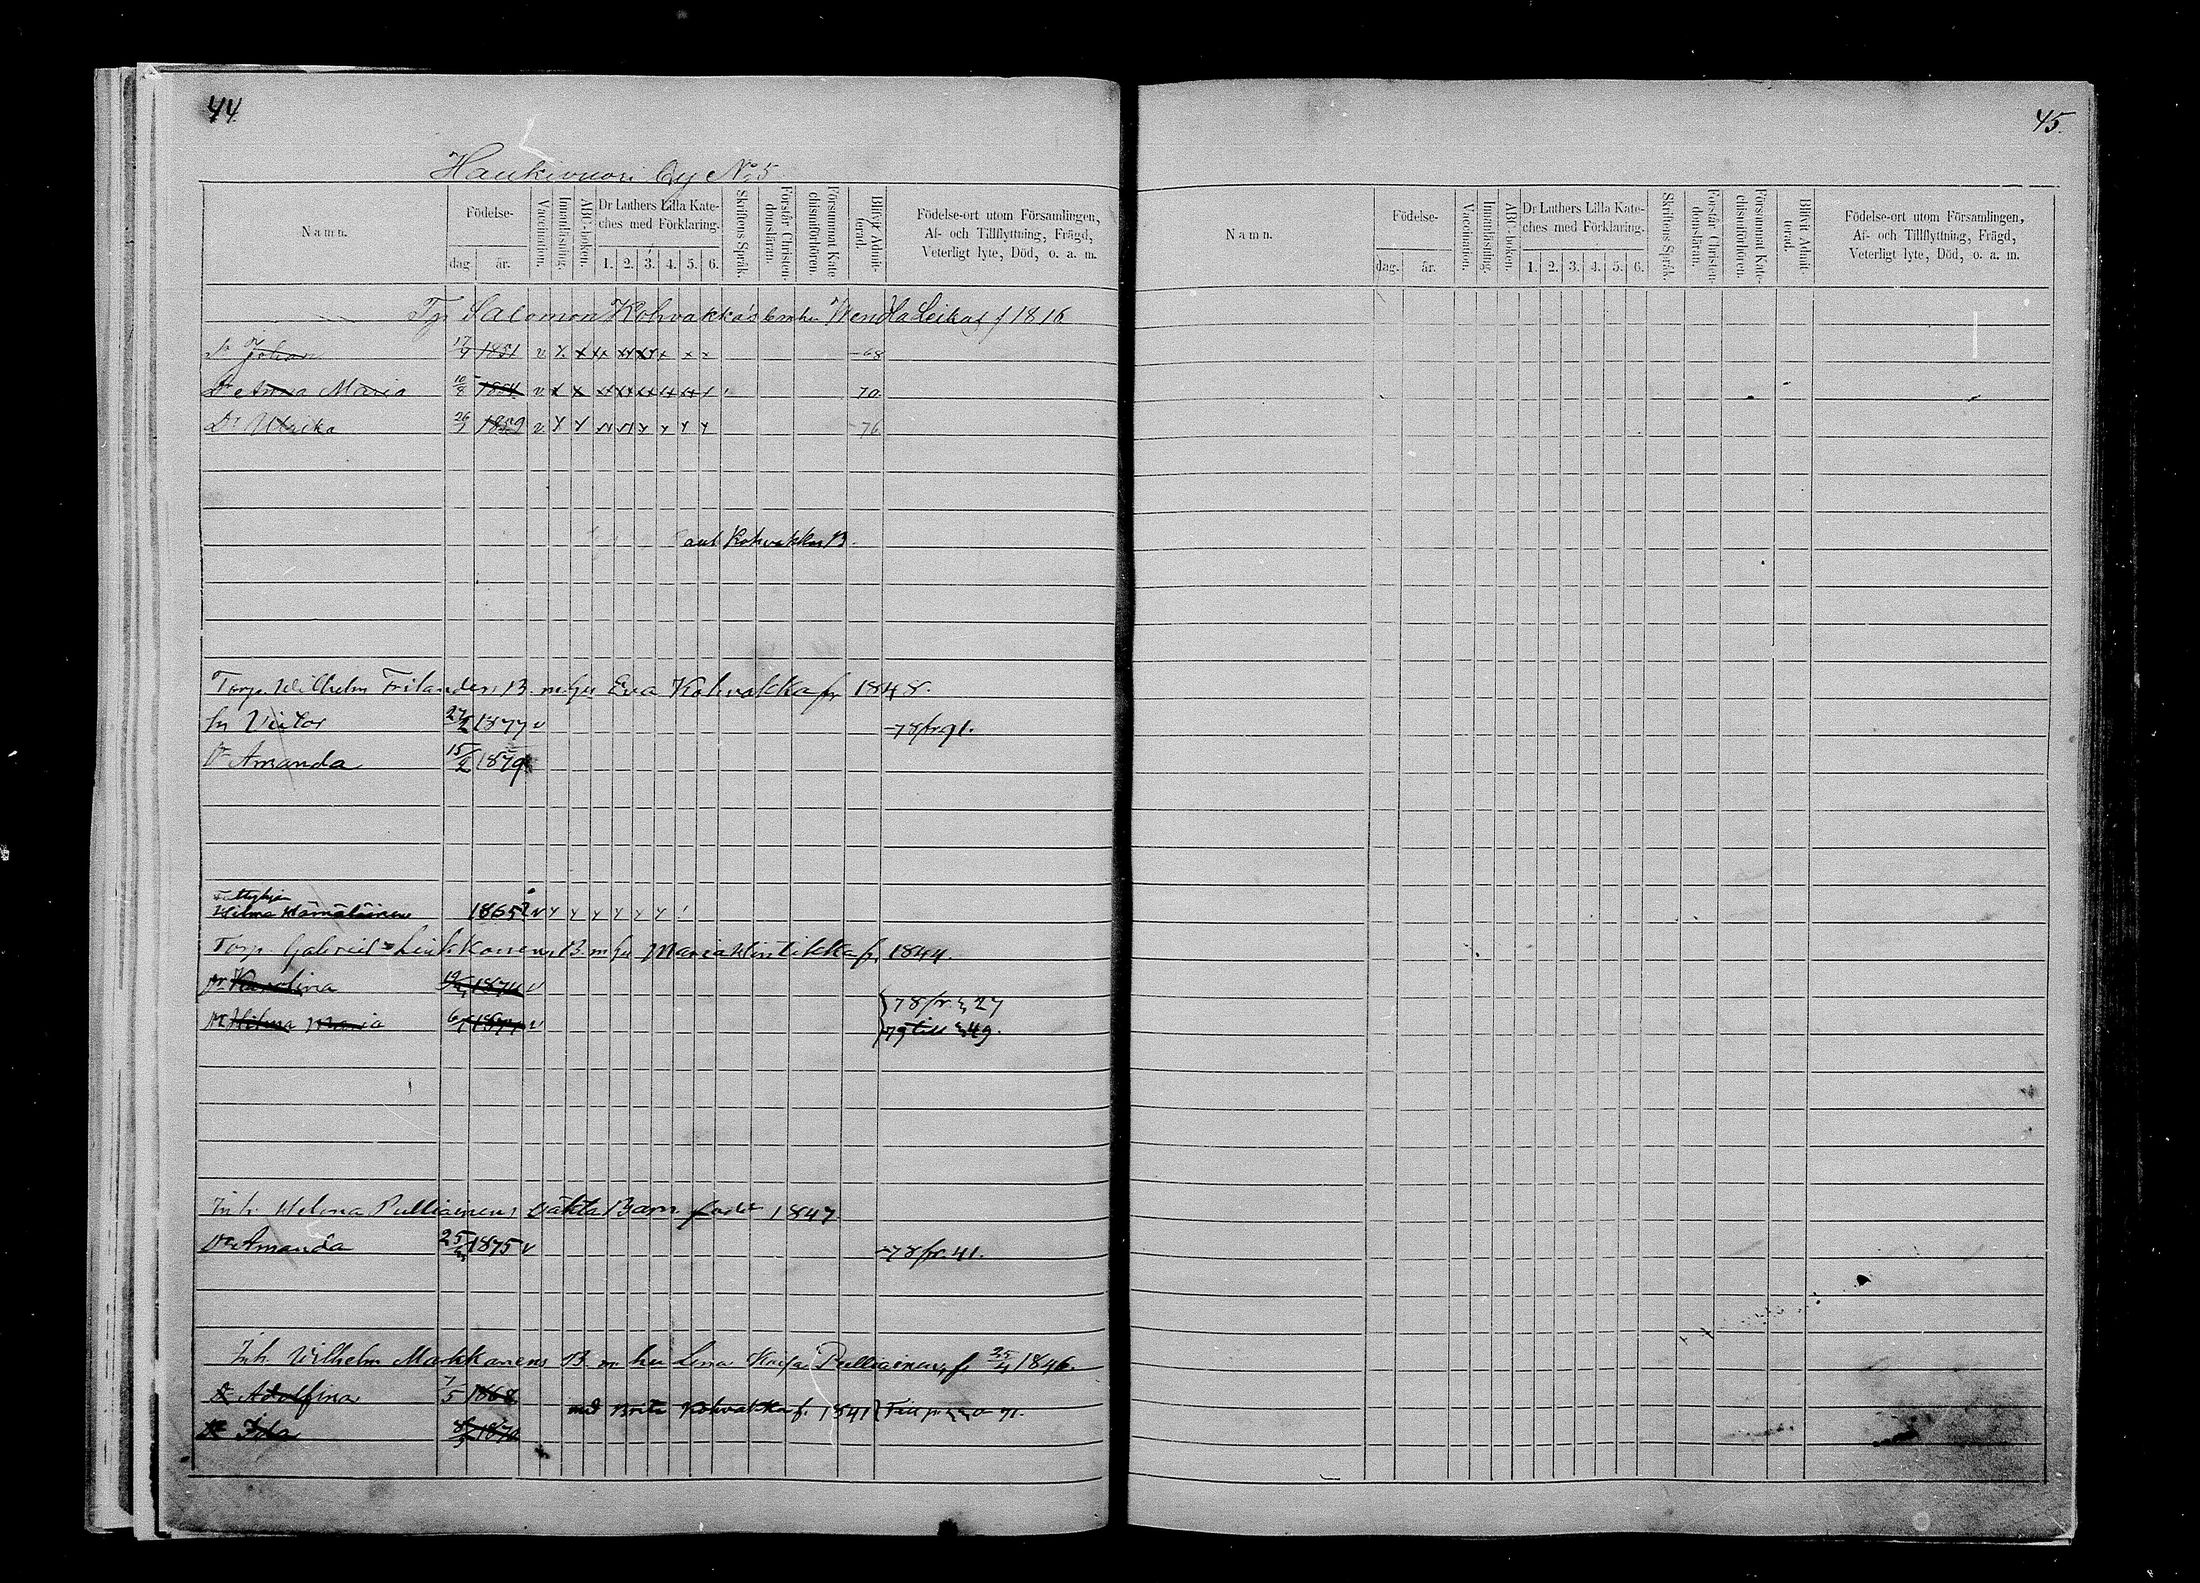 44
Haukivuori By No 5
Namn. Födelse- dag. år. Vaccination. Innanläsning. ABC-boken. Dr Luthers Lilla Kate-ches med Förklaring. 1. 2. 3. 4. 5. 6. Skriftens Språk. Förstår Christen-domsläran. Försummat Kate-chismiförhören. Blifvit Admit-terad. Födelse-ort utom Församlingen, Af- och Tillflyttning, Frägd, Veterligt lyte, Död, o. a. m.
Salomon Kohvakka's 1816
Johan 17/9 1851 v x x x x x x x x -68
Dr Anna Maria 10/8 1854 v x x x x x x x 70
Dr Ulrika 26/7 1859 v x x x x x x x x -76
Kohvakka B.
Torp. Wilhelm Frilanders B. m. hu Eva Kohvakka f. 1848.
Sn Victor 27/2 1877 v -78 fr 91.
Dr Amanda 15/2 1879
Hilma Hämäläinen 1865 v
Torp. Gabriel B. m hu Maria Hintikka f. 1844.
Dr Karolina 1874 v
78 fr 27
Dr Hilma Maria 1877 v
79 till 49.
Inh. Helena Pulliainens oäkta Barn född 1847
Dr Amanda 25/ 1875 v -78 fr. 41.
Inh. Wilhelm Markkanens B. m hu Lena Kaisa Pulliainen, f. 25/4 1846.
Dr Adolfina 7/5 1868
med Brita Kohvakka f. 1841
Dr Ida 1870
45.
Namn. Födelse- dag. år. Vaccination. Innanläsning. ABC-boken. Dr Luthers Lilla Kate-ches med Förklaring. 1. 2. 3. 4. 5. 6. Skriftens Språk. Förstår Christen-domsläran. Försummat Kate-chismiförhören. Blifvit Admit-terad. Födelse-ort utom Församlingen, Af- och Tillflyttning, Frägd, Veterligt lyte, Död, o. a. m.